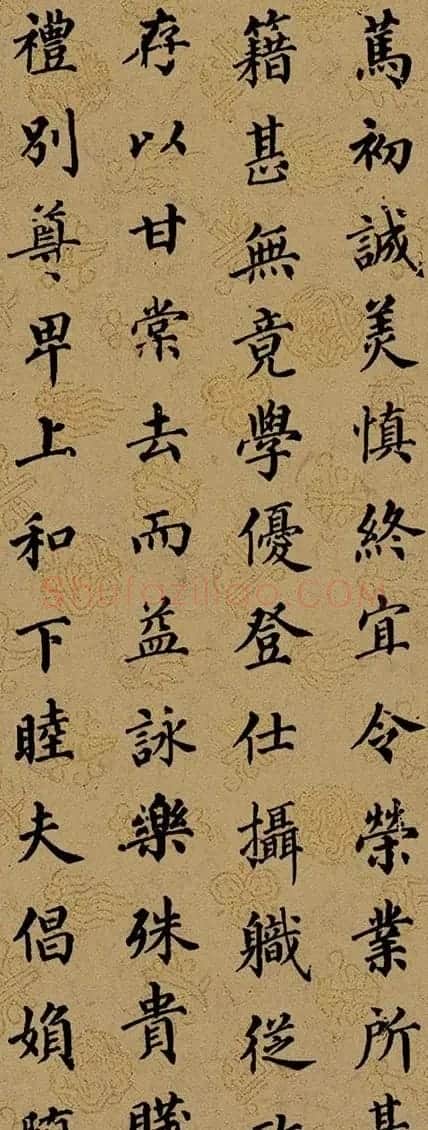 篤初誠美慎終宜令榮業所基
籍甚無竟學優登仕攝職從政
存以甘棠去而益詠樂殊貴賤
禮別尊卑上和下睦夫倡婦隨
shufaziliao.com